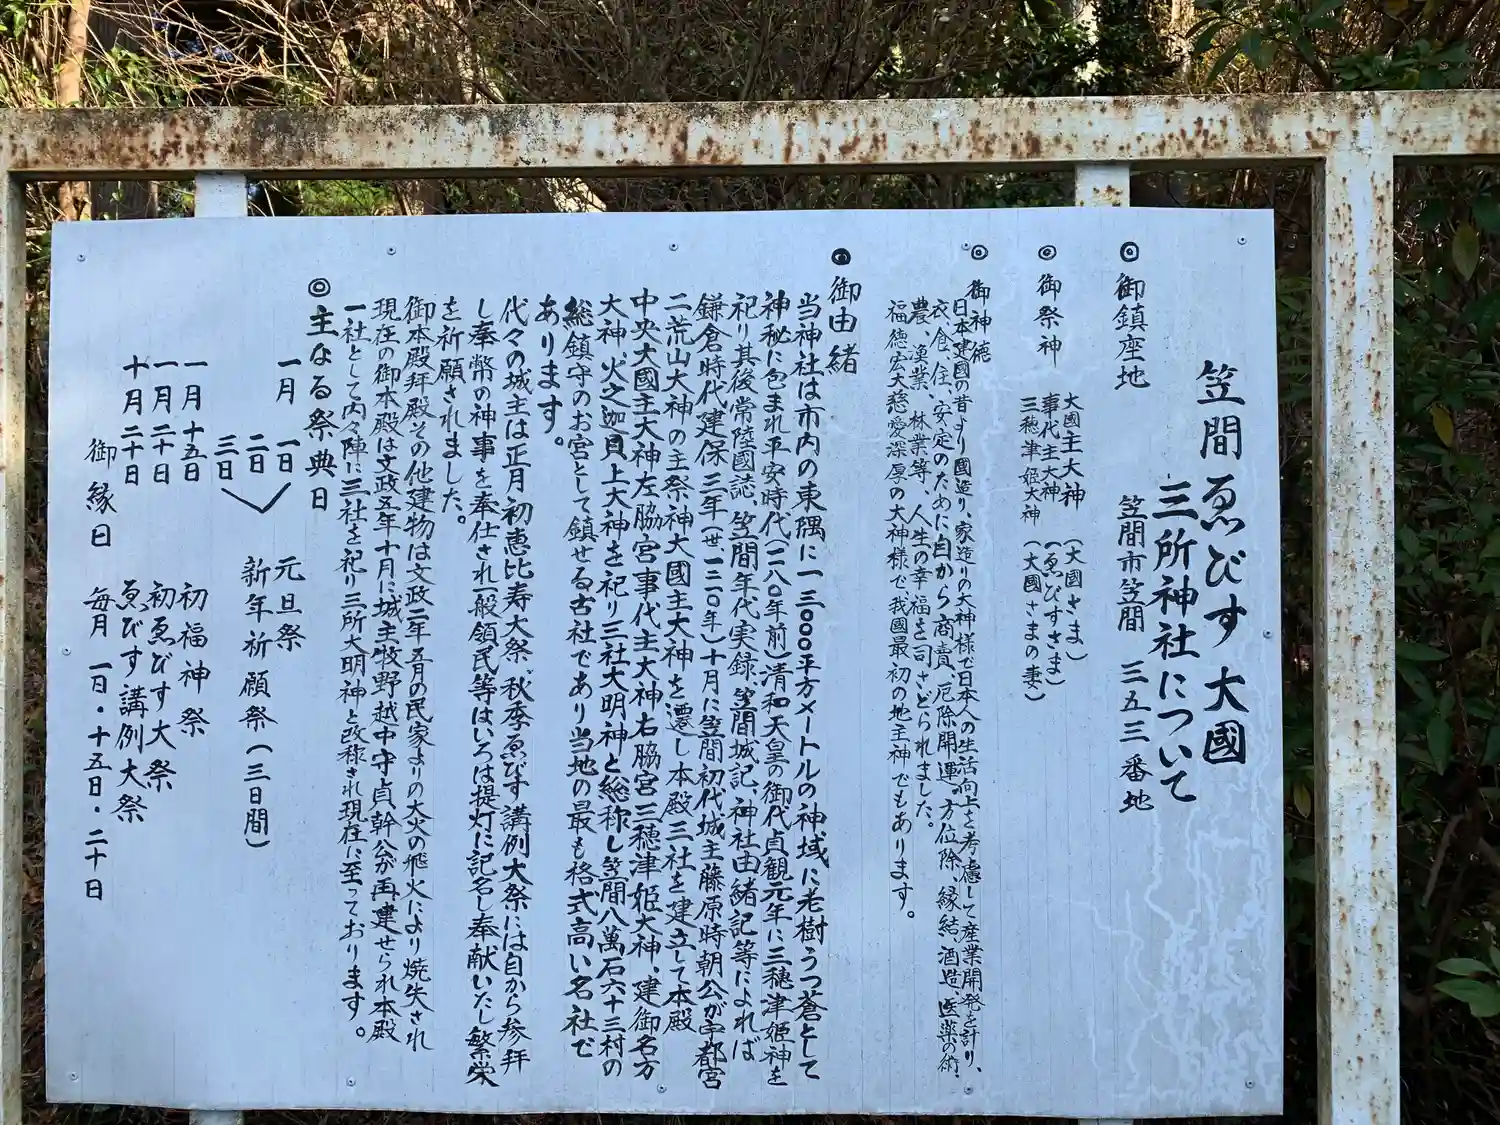 笠間ゑびす大國
三所神社について
◉ 御鎮座地 笠間市笠間 三五三番地
◉ 御祭神 大國主大神 (大國さま)
事代主大神 (ゑびすさま)
三穂津姫大神 (大國さまの妻)
◉ 御神徳
日本建國の昔より國造り、家造りの大神様で日本人の生活向上を考慮して産業開発を計り、
衣、食、住、安定のために自から商売、厄除開運、方位除、縁結、酒造、医薬の術、
農、漁業、林業等、人生の幸福を司さどられました。
福徳宏大慈愛深厚の大神様で、我國最初の地主神でもあります。
◉ 御由緒
当神社は市内の東隅に一三〇〇〇平方メートルの神域に老樹うつ蒼として
神秘に包まれ平安時代(一一八〇年前)清和天皇の御代貞観元年に三穂津姫神を
祀り其後常陸國誌、笠間年代実録、笠間城記、神社由緒記等によれば
鎌倉時代建保三年(世一二三〇年)十月に笠間初代城主藤原時朝公が宇都宮
二荒山大神の主祭神大國主大神を遷し本殿三社を建立して本殿
中央大國主大神左脇宮事代主大神右脇宮三穂津姫大神、建御名方
大神、火之迦具上大神を祀り三社大明神と総称し笠間八萬石六十三村の
総鎮守のお宮として鎮せる古社であり当地の最も格式高い名社で
あります。
代々の城主は正月初恵比寿大祭、秋季ゑびす講例大祭には自から参拜
し奉幣の神事を奉仕され一般領民等はいろは提灯に記名し奉献いたし繁栄
を祈願されました。
御本殿拜殿その他建物は文政二年五月の民家よりの大火の飛火により焼失され
現在の御本殿は文政五年十月に城主牧野越中守貞幹公が再建せられ本殿
一社として内々陣に三社を祀り三所大明神と改称され現在に至っております。
◎主なる祭典日
一月 一日 元旦祭
二日 新年祈願祭(三日間)
三日
一月十五日 初福神祭
一月二十日 初ゑびす大祭
十月二十日 ゑびす講例大祭
御縁日 毎月 一日・十五日・二十日